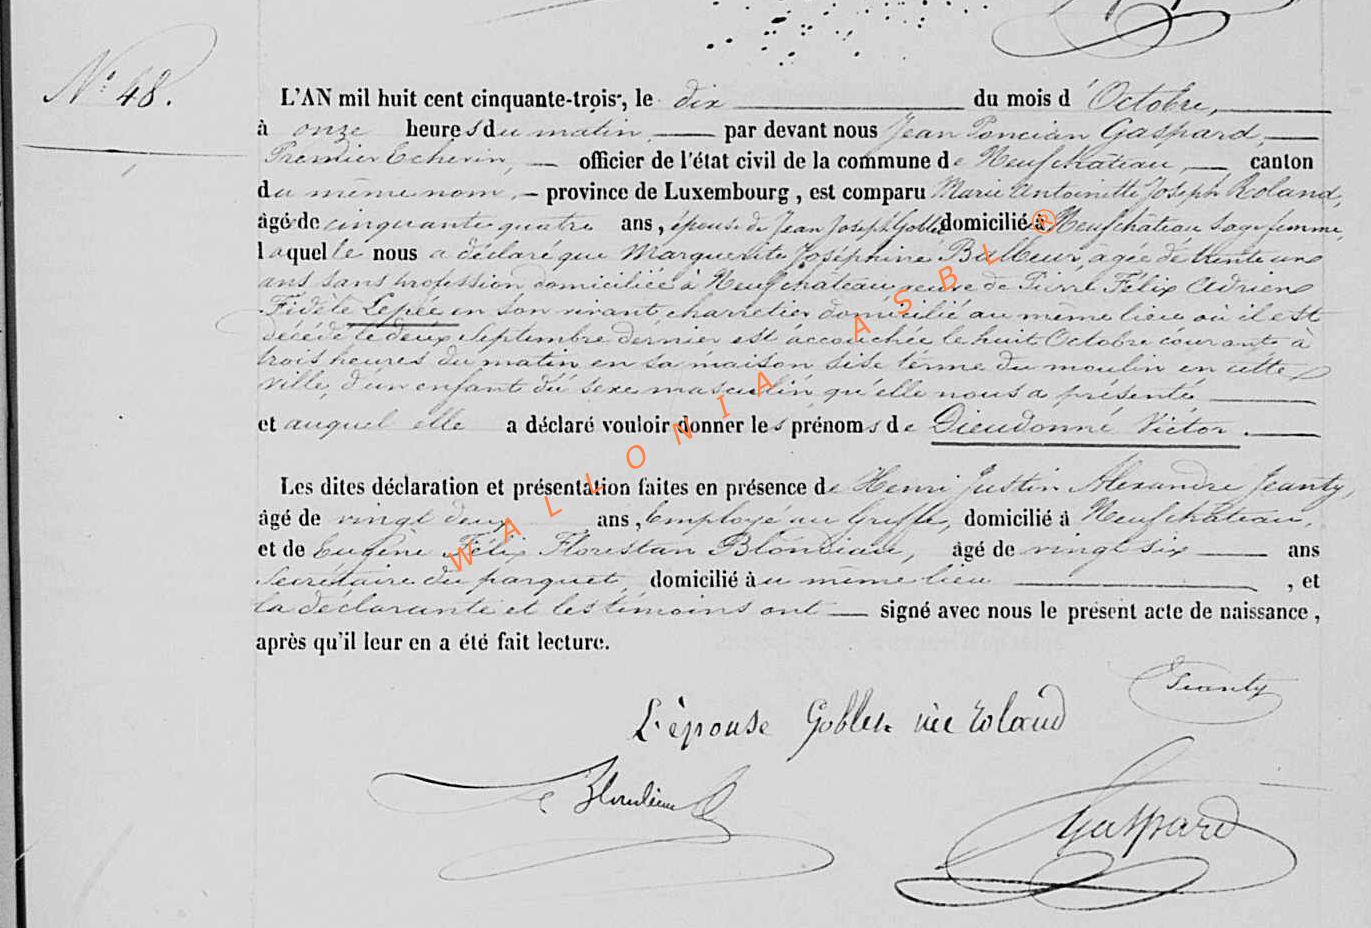 N° 48.
L'AN mil huit cent cinquante-trois, le dix du mois d'Octobre,
à onze heures du matin par devant nous Jean Poncian Gaspard,
Premier Echevin, officier de l'état civil de la commune de Neufchâteau, canton
du même nom, province de Luxembourg, est comparu Marie Antoinette Joseph Roland,
âgé de cinquante quatre ans, épouse de Jean Joseph Goblet domicilié à Neufchâteau sage femme,
laquelle nous a déclaré que Marguerite Joséphine agée de trente un
ans sans profession domiciliée à Neufchâteau veuve de Pierre Félix Adrien
Fidèle Lepée en son vivant charretier domicilié au même lieu où il est
décédé le deux Septembre dernier est accouchée le huit Octobre courant à
trois heures du matin en sa maison sise terme du moulin en cette
ville, d'un enfant du sexe masculin, qu'elle nous a présenté
et auquel elle a déclaré vouloir donner les prénoms de Dieudonné Victor.
Les dites déclaration et présentation faites en présence de Henri Justin Alexandre Jeanty,
âgé de vingt deux ans, Employé au Greffe, domicilié à Neufchâteau,
et de Eugène Félix Florestan Blondiau, âgé de vingt six ans
Secrétaire du parquet, domicilié au même lieu, et
la déclarante et les témoins ont signé avec nous le présent acte de naissance,
après qu'il leur en a été fait lecture.
Jeanty
L'épouse Goblet née roland
Blondiau
Gaspard
WALLONIA ASBL ®